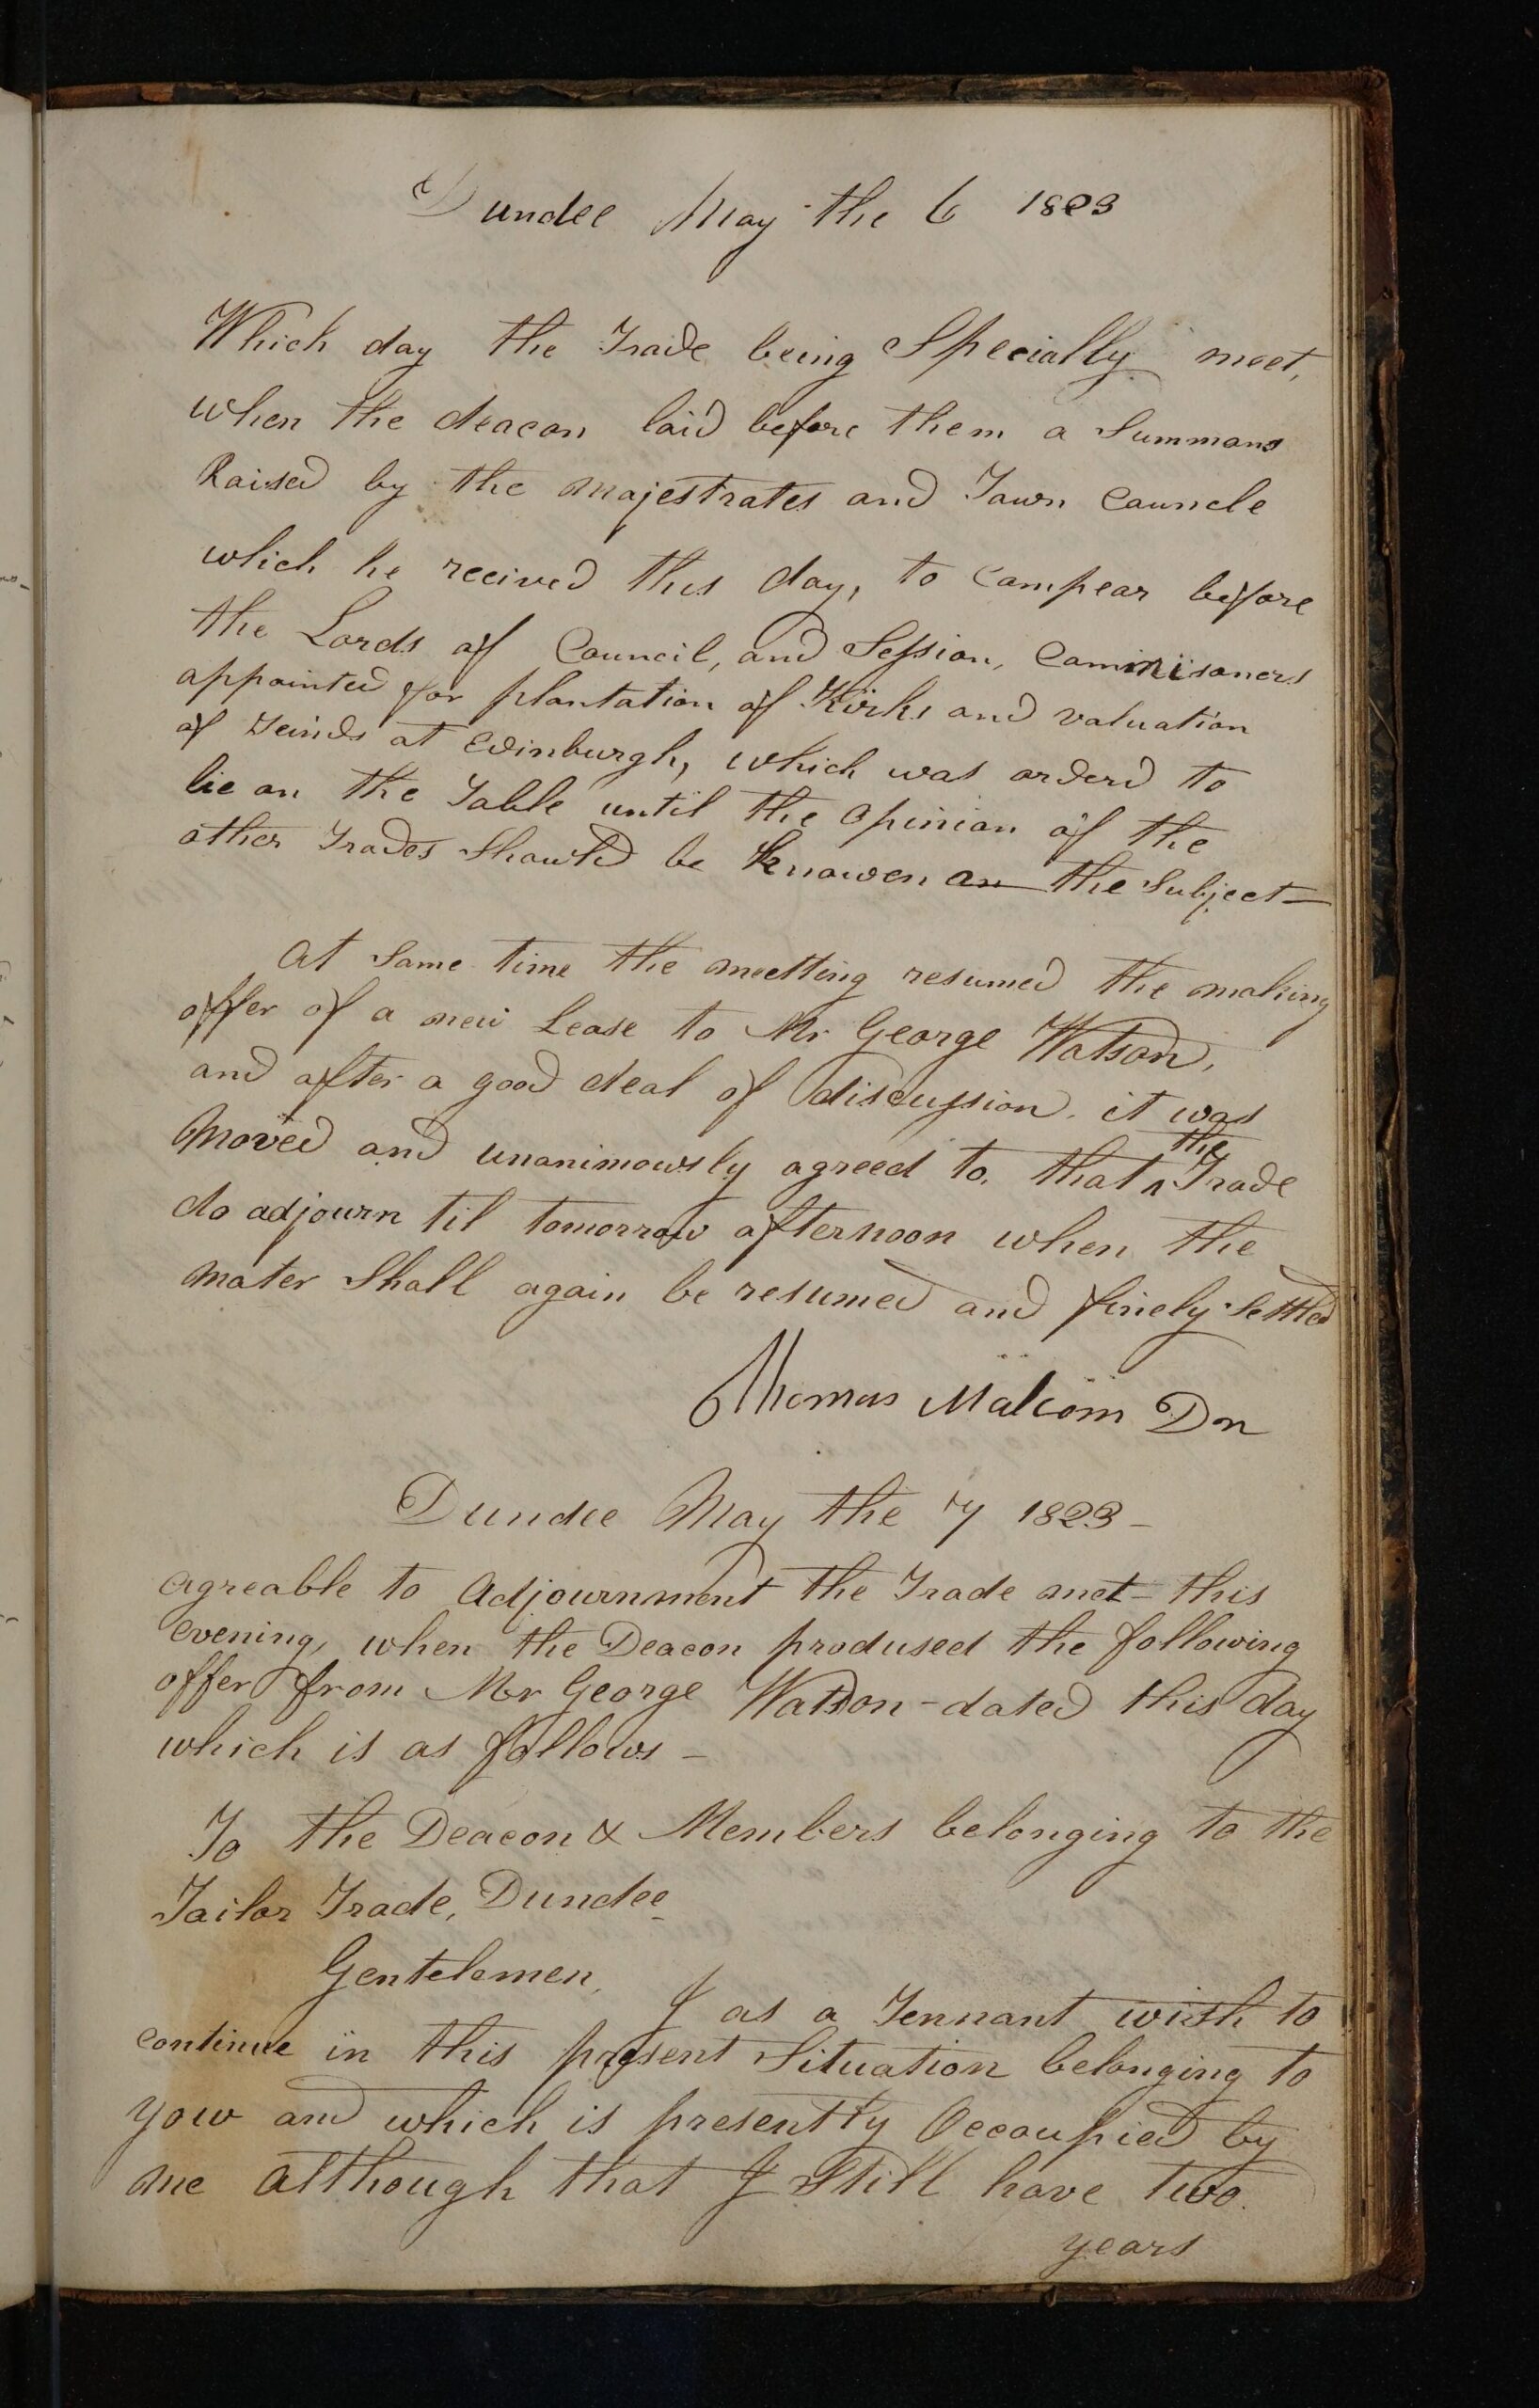 Dundee May the 6 1823
Which day the Trade being Specially meet,
when the deacon laid before them a Summons
Raised by the majestrates and Town Councle
which he received this day, to Compear before
the Lords of Council, and Session, Commisoners
appointed for plantation of Kirks and valuation
of Teinds at Edinburgh, which was orderd to
lie on the Table until the Opinion of the
other Trades Should be Knowen on the Subject—
At Same time the meetting resumed the making
offer of a new Lease to Mr George Watson,
and after a good deal of discussion. it was
Moved and unanimowsly agreed to. that ^ the Trade
do adjourn til tomorrow afternoon when the
mater Shall again be resumed and finely Settled
Thomas Malcom Dn
Dundee May the 7 1823 –
agreable to Adjournment the Trade met – this
evening, when the Deacon prodused the following
offer from Mr George Watson – dated this day
which is as follows –
To the Deacon & Members belonging to the
Tailor Trade, Dundee
Gentelemen,
I as a Tennant wish to
continue in this present Situation belonging to
yow and which is presently Occoupied by
me although that I Still have two.
years